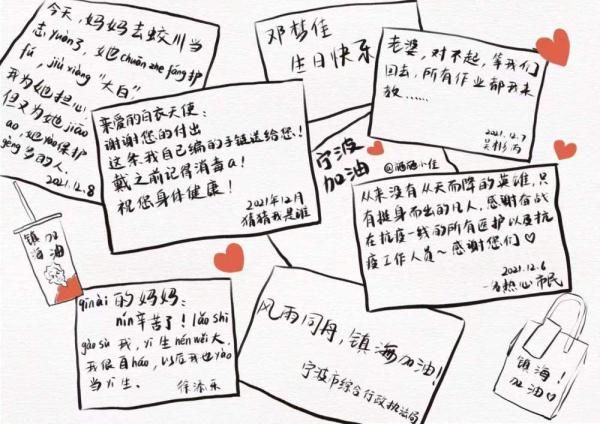 今天，妈妈去蛟川当
志yuàn了，她chuān zhe fáng护
fú，jiù xiàng "大白"
我为她担心
但又为她jiāo
ào，她yào保护
gèng多的人.
2021.12.8
邓梦佳
生日快乐
老婆，对不起，等我们
回去，所有作业都我来
教……
2021.12.7
亲爱的白衣天使：
谢谢您的付出
这条我自己编的手链送给您！
戴之前记得消毒a！
祝您身体健康！
2021年12月
猜猜我是谁
宁波
加油
从来没有从天而降的英雄，只
有挺身而出的凡人，感谢奋战
在抗疫一线的所有医护以及抗
疫工作人员～感谢您们♡
2021.12.6
一名热心市民
镇海
加油
qīnài的妈妈：
nín辛苦了！lǎo shī
gào sù 我，yī生hěn wěi大，
我很自háo，以后我也yào
当yī生。
徐添乐
风雨同舟，镇海加油！
宁波市综合行政执法局
镇海！
加油♡